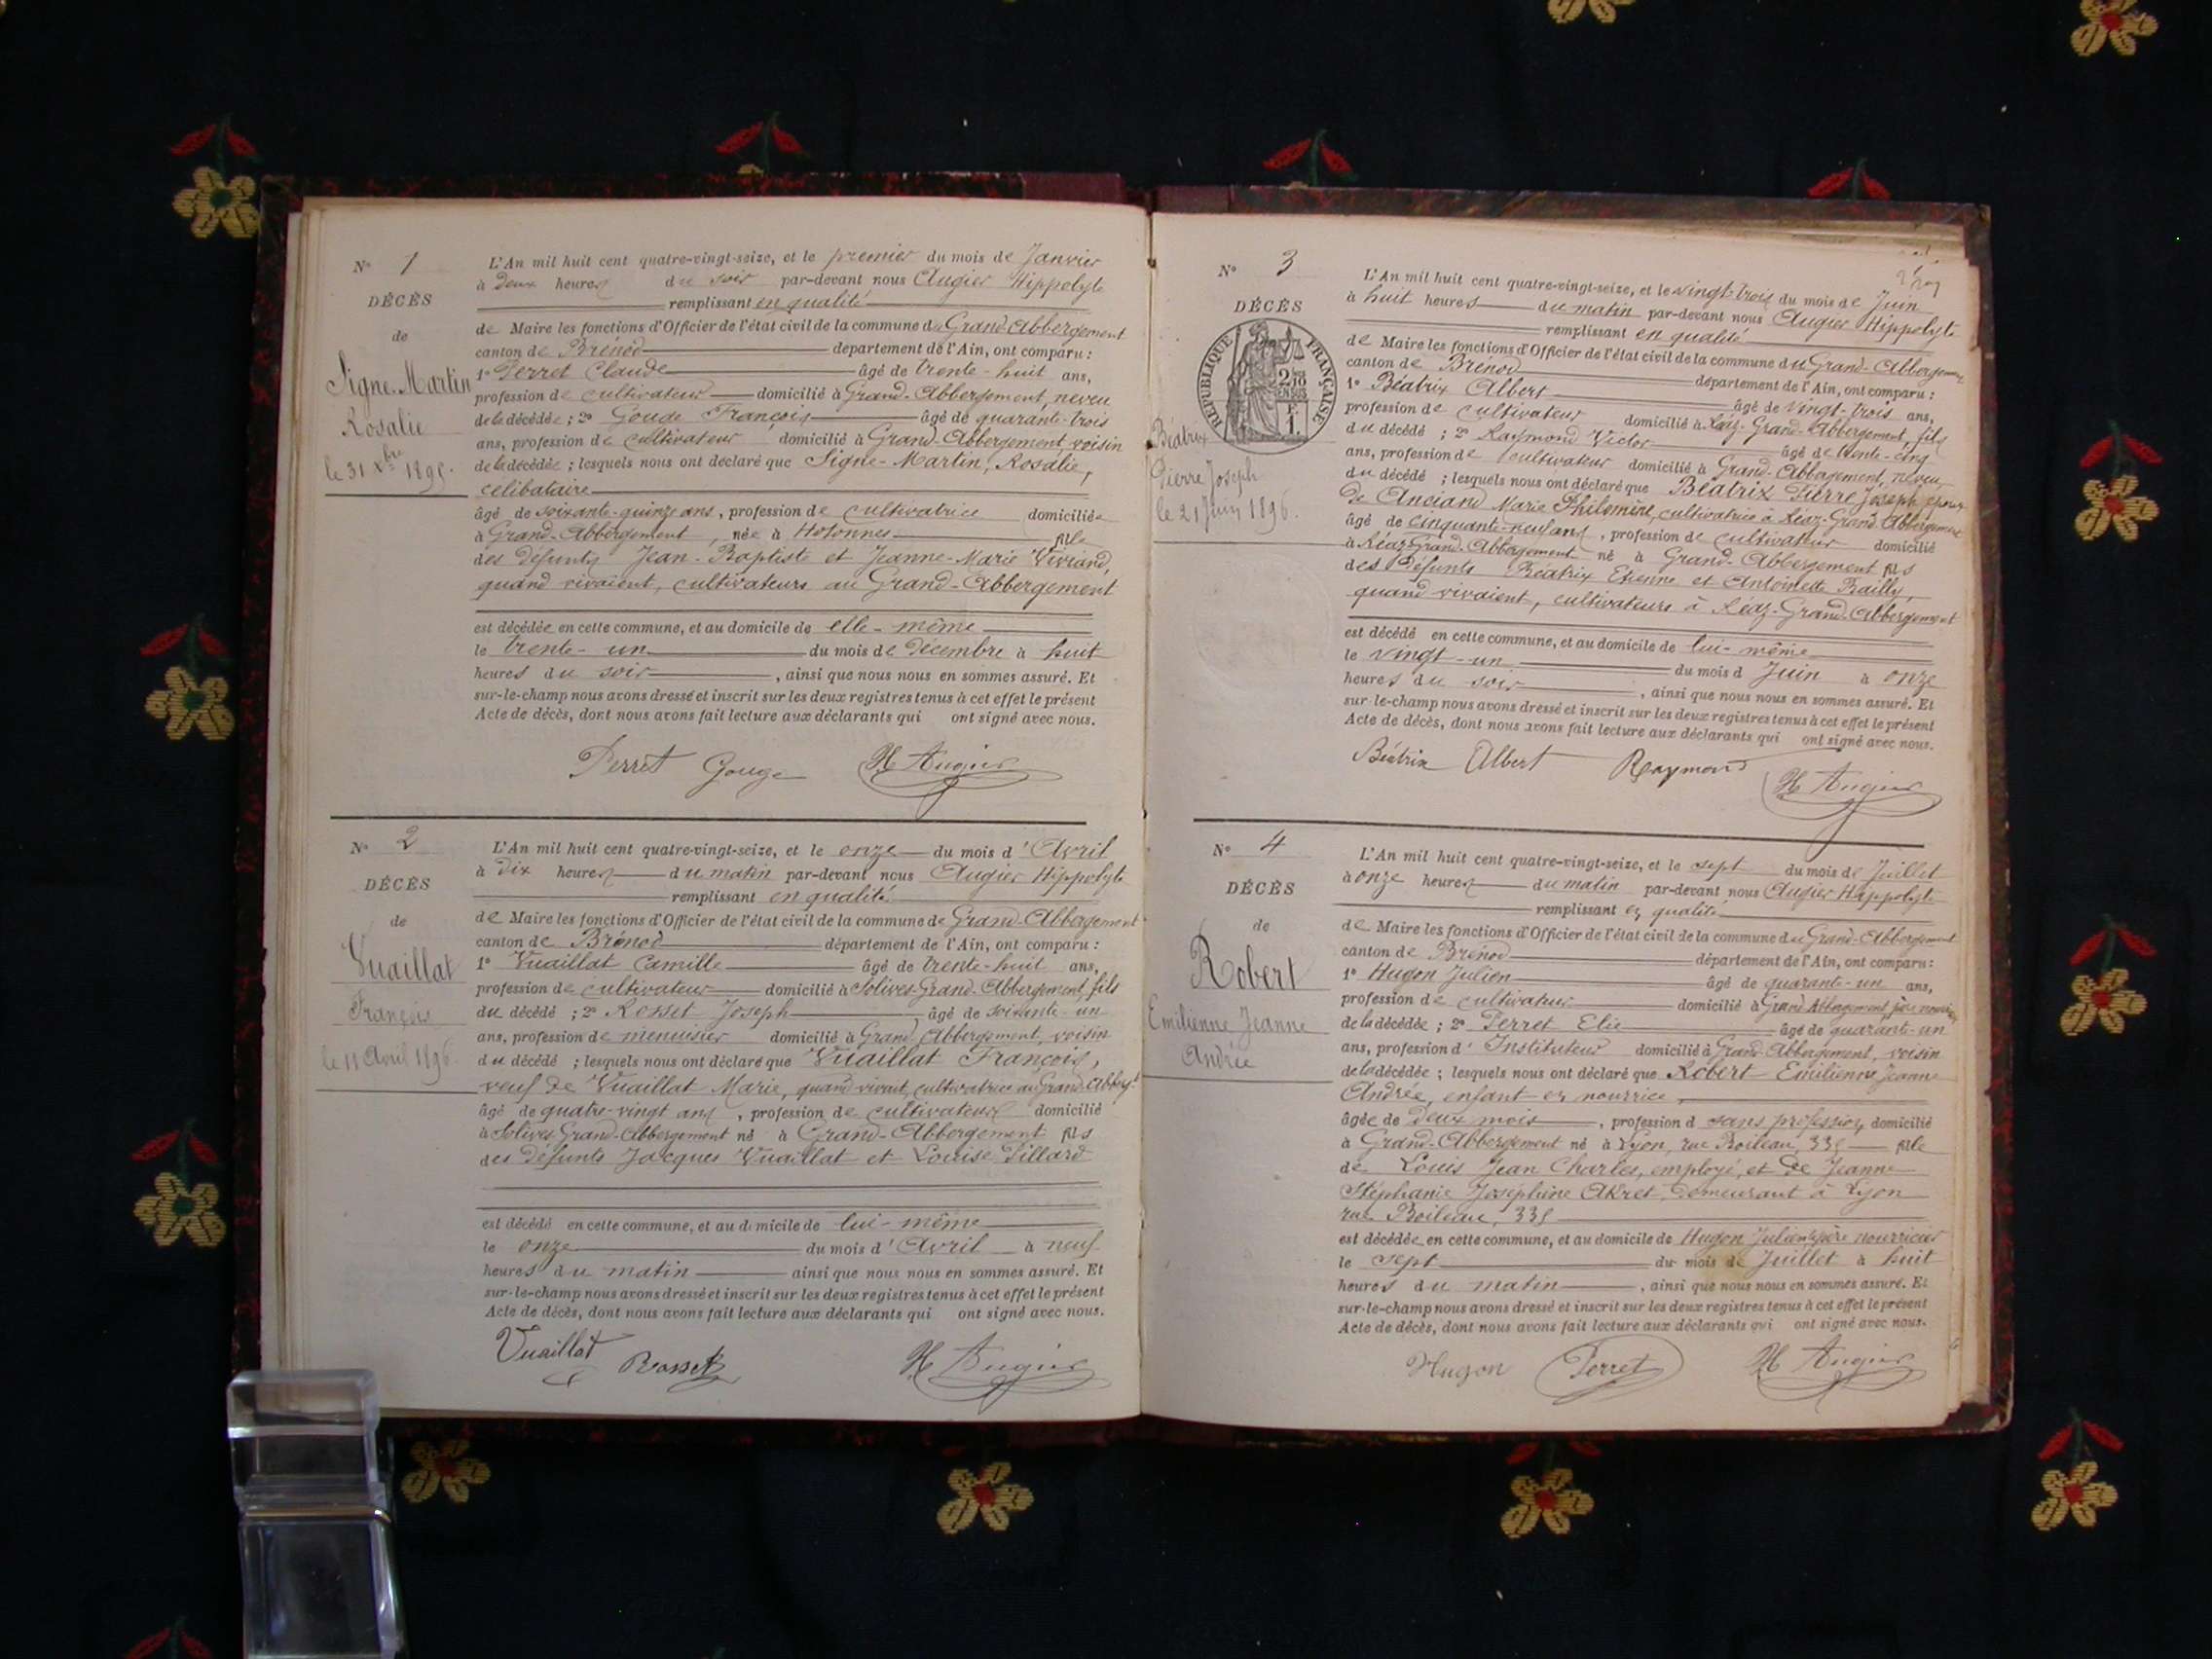 N° 1
DÉCÈS
de
Signe-Martin
Rosalie
le 31 Xbre 1895.
L'An mil huit cent quatre-vingt-seize, et le premier du mois de Janvier
à deux heures du soir par-devant nous Augier Hippolyte
remplissant en qualité
de Maire les fonctions d'Officier de l'état civil de la commune du Grand-Abbergement
canton de Brénod département de l'Ain, ont comparu :
1° Perret Claude âgé de trente-huit ans,
profession de cultivateur domicilié à Grand-Abbergement, neveu
de la décédée ; 2° Gouge François âgé de quarante-trois
ans, profession de cultivateur domicilié à Grand-Abbergement, voisin
de la décédée ; lesquels nous ont déclaré que Signe-Martin, Rosalie,
célibataire
âgé de soixante-quinze ans, profession de cultivatrice domiciliée
à Grand-Abbergement, née à Hotonnes fille
des défunts Jean-Baptiste et Jeanne-Marie Viviand,
quand vivaient, cultivateurs au Grand-Abbergement
est décédée en cette commune, et au domicile de elle-même
le trente-un du mois de Décembre à huit
heures du soir, ainsi que nous nous en sommes assuré. Et
sur-le-champ nous avons dressé et inscrit sur les deux registres tenus à cet effet le présent
Acte de décès, dont nous avons fait lecture aux déclarants qui ont signé avec nous.
Perret Gouge H Augier
N° 2
DÉCÈS
de
Vuaillat
François
le 11 Avril 1896.
L'An mil huit cent quatre-vingt-seize, et le onze du mois d'Avril
à dix heures du matin par-devant nous Augier Hippolyte
remplissant en qualité
de Maire les fonctions d'Officier de l'état civil de la commune de Grand-Abbergement
canton de Brénod département de l'Ain, ont comparu :
1° Vuaillat Camille âgé de trente-huit ans,
profession de cultivateur domicilié à Solives-Grand-Abbergement, fils
du décédé ; 2° Rosset Joseph âgé de soixante-un
ans, profession de menuisier domicilié à Grand Abbergement, voisin
du décédé ; lesquels nous ont déclaré que Vuaillat François,
veuf de Vuaillat Marie, quand vivait, cultivatrice au Grand-Abbergt
âgé de quatre-vingt ans, profession de cultivateur domicilié
à Solives Grand-Abbergement né à Grand-Abbergement fils
des défunts Jacques Vuaillat et Louise Pillard
est décédé en cette commune, et au domicile de lui-même
le onze du mois d'Avril à neuf
heures du matin ainsi que nous nous en sommes assuré. Et
sur-le-champ nous avons dressé et inscrit sur les deux registres tenus à cet effet le présent
Acte de décès, dont nous avons fait lecture aux déclarants qui ont signé avec nous.
Vuaillat Rosset H Augier
N° 3
DÉCÈS
RÉPUBLIQUE FRANÇAISE
Béatrix
Pierre Joseph
le 21 Juin 1896.
L'An mil huit cent quatre-vingt-seize, et le vingt-trois du mois de Juin
à huit heures du matin par-devant nous Augier Hippolyte
remplissant en qualité
de Maire les fonctions d'Officier de l'état civil de la commune du Grand-Abbergement
canton de Brénod département de l'Ain, ont comparu :
1° Béatrix Albert âgé de vingt-trois ans,
profession de cultivateur domicilié à Léaz-Grand-Abbergement, fils
du décédé ; 2° Raymond Victor âgé de trente-cinq
ans, profession de cultivateur domicilié à Grand-Abbergement, neveu
du décédé ; lesquels nous ont déclaré que Béatrix Pierre Joseph époux
de Anciand Marie Philomène, cultivatrice à Léaz-Grand Abbergement
âgé de cinquante-neuf ans, profession de cultivateur domicilié
à Léaz-Grand-Abbergement né à Grand-Abbergement fils
des défunts Béatrix Etienne et Antoinette Frailly,
quand vivaient, cultivateurs à Léaz-Grand-Abbergement
est décédé en cette commune, et au domicile de lui-même
le vingt-un du mois d Juin à onze
heures du soir, ainsi que nous nous en sommes assuré. Et
sur-le-champ nous avons dressé et inscrit sur les deux registres tenus à cet effet le présent
Acte de décès, dont nous avons fait lecture aux déclarants qui ont signé avec nous.
Béatrix Albert Raymond
H Augier
N° 4
DÉCÈS
de
Robert
Emilienne Jeanne
Andrée
L'An mil huit cent quatre-vingt-seize, et le sept du mois de Juillet
à onze heures du matin par-devant nous Augier Hippolyte
remplissant en qualité
de Maire les fonctions d'Officier de l'état civil de la commune du Grand-Abbergement
canton de Brénod département de l'Ain, ont comparu :
1° Hugon Julien âgé de quarante-un ans,
profession de cultivateur domicilié à Grand Abbergement père nourricier
de la décédée ; 2° Perret Elie âgé de quarante-un
ans, profession d'Instituteur domicilié à Grand-Abbergement, voisin
de la décédée ; lesquels nous ont déclaré que Robert Emilienne Jeanne
Andrée, enfant en nourrice,
âgée de deux mois, profession d sans profession, domicilié
à Grand-Abbergement né à Lyon, rue Boileau, 335 fille
de Louis Jean Charles, employé, et de Jeanne
Stéphanie Joséphine Akret, demeurant à Lyon
rue Boileau, 335
est décédée en cette commune, et au domicile de Hugon Julien père nourricier
le sept du mois de Juillet à huit
heures du matin, ainsi que nous nous en sommes assuré. Et
sur-le-champ nous avons dressé et inscrit sur les deux registres tenus à cet effet le présent
Acte de décès, dont nous avons fait lecture aux déclarants qui ont signé avec nous.
Hugon Perret H Augier